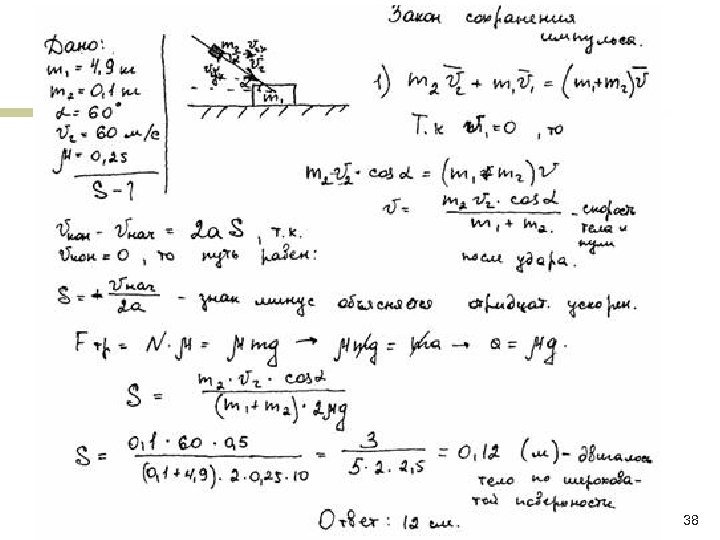 Закон сохранения
импульса.
Дано:
m₁ = 4,9 кг
m₂ = 0,1 кг
α = 60°
v₂ = 60 м/с
μ = 0,25
S - ?
m₂ v₂
m₁
1) m₂v̅₂ + m₁v̅₁ = (m₁+m₂)v̅
Т.к v₁=0 , то
m₂·v₂·cosα = (m₁+m₂)v
v = m₂v₂·cosα / m₁+m₂ - скорость
тела и
пули
после удара.
vкон - vнач = 2aS , т.к.
vкон = 0 , то путь равен:
S = + vнач / 2a - знак минус объясняется отридцат. ускорен.
Fтр = N·μ = μmg → μmg = ma → a = μg.
S = m₂·v₂·cosα / (m₁+m₂)·2μg
S = 0,1·60·0,5 / (0,1+4,9)·2·0,25·10 = 3 / 5·2·2,5 = 0,12 (м)- двигалось
тело по шерохова-
той поверхности
Ответ: 12 см.
38